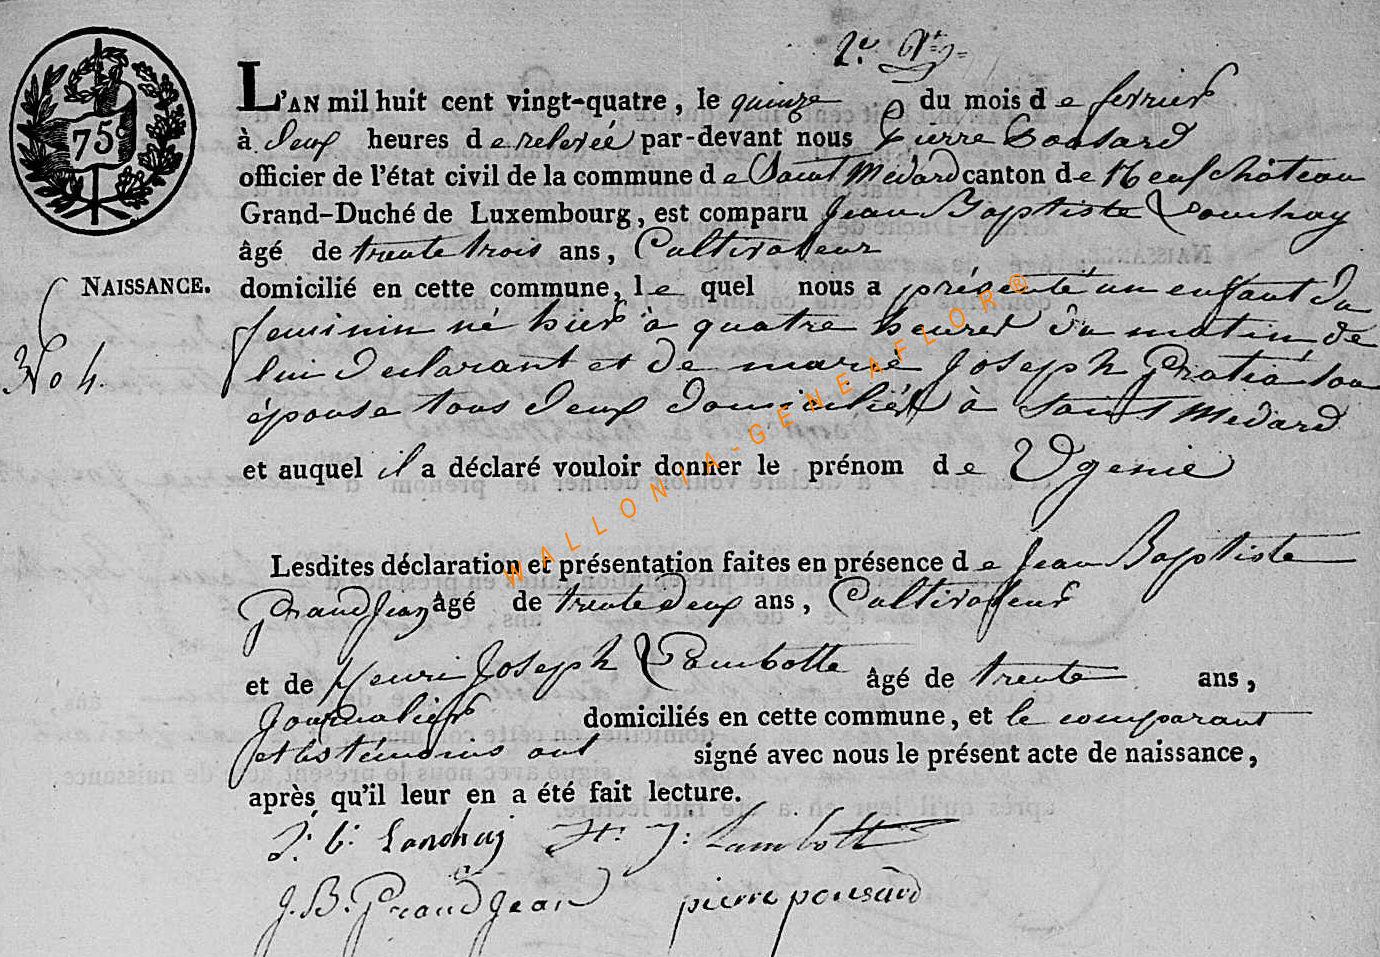 2e.
75
L'AN mil huit cent vingt-quatre, le quinze du mois de fevrier
à deux heures de relevée par-devant nous Pierre Pousard
officier de l'état civil de la commune de Saint Médard canton de Neufchâteau
Grand-Duché de Luxembourg, est comparu Jean Baptiste Lonchay
âgé de trente trois ans, Cultivateur
NAISSANCE. domicilié en cette commune, le quel nous a présenté un enfant du
No 4. feminin né hier à quatre heures du matin de
lui declarant et de marie Joseph son
épouse tous deux domiciliés à Saint Médard
et auquel il a déclaré vouloir donner le prénom de Ugenie
Lesdites déclaration et présentation faites en présence de Jean Baptiste
Grandjean âgé de trente deux ans, Cultivateur
et de Henri Joseph Lambotte âgé de trente ans,
Journalier domiciliés en cette commune, et le comparant
et les témoins ont signé avec nous le présent acte de naissance,
après qu'il leur en a été fait lecture.
J. b. Lonchaij H. J: Lambotte
J. B. Grandjean pierre pousard
WALLONIA-GENEAFLOR®